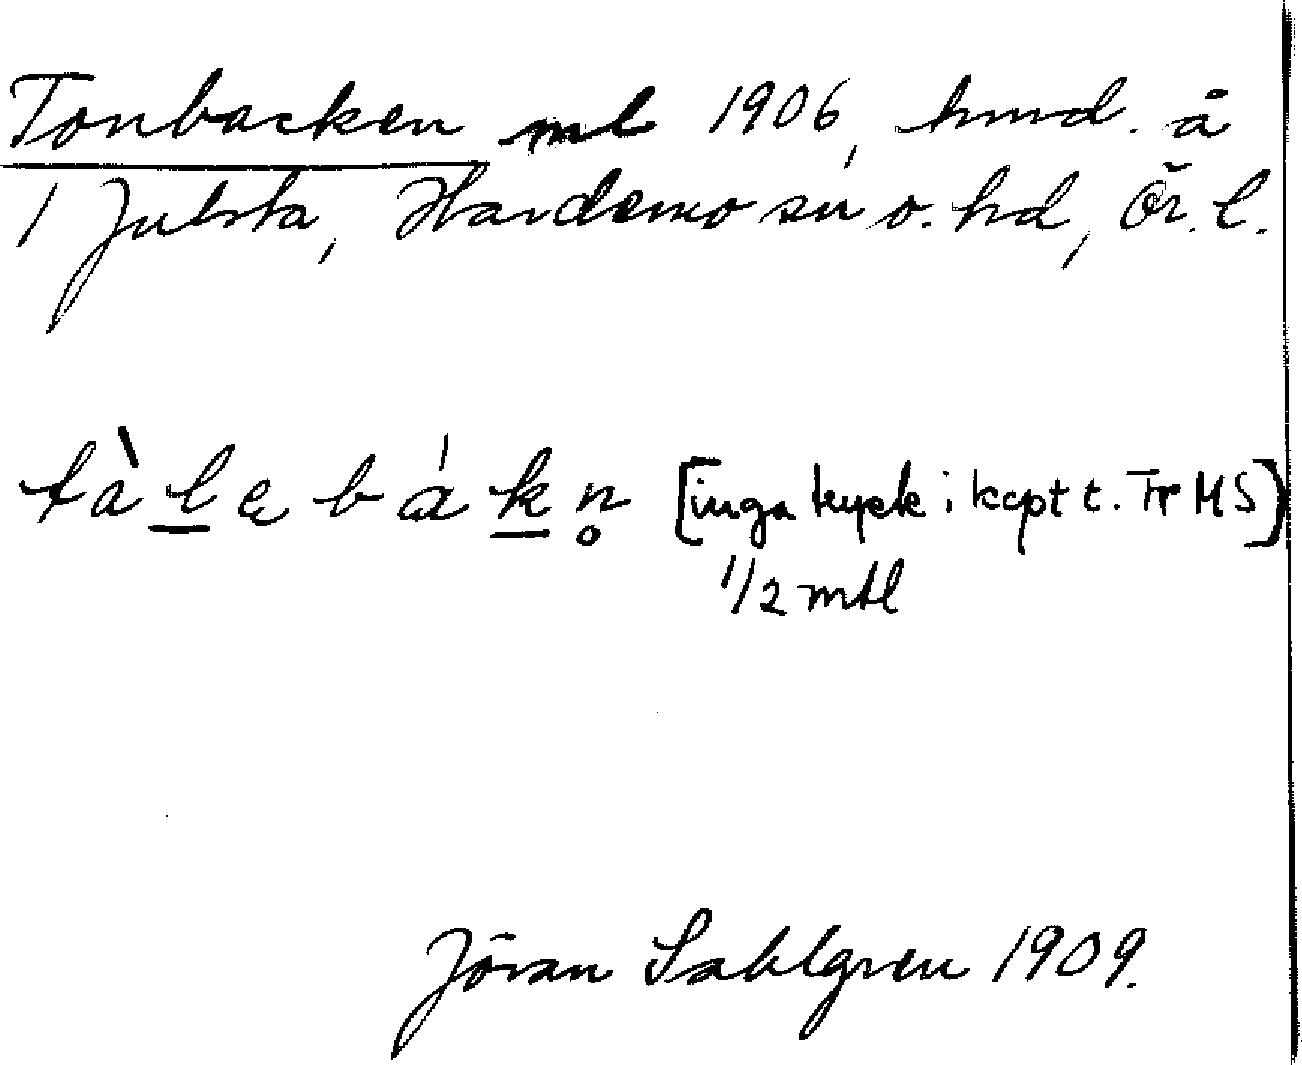 Tonbacken ml 1906, hmd. å
1 Julsta, Hardemo sn o. hd, Ör. l.
tàlębákn̥ [inga tryck i kopt t. Tr MS]
1/2 mtl
Jöran Sahlgren 1909.